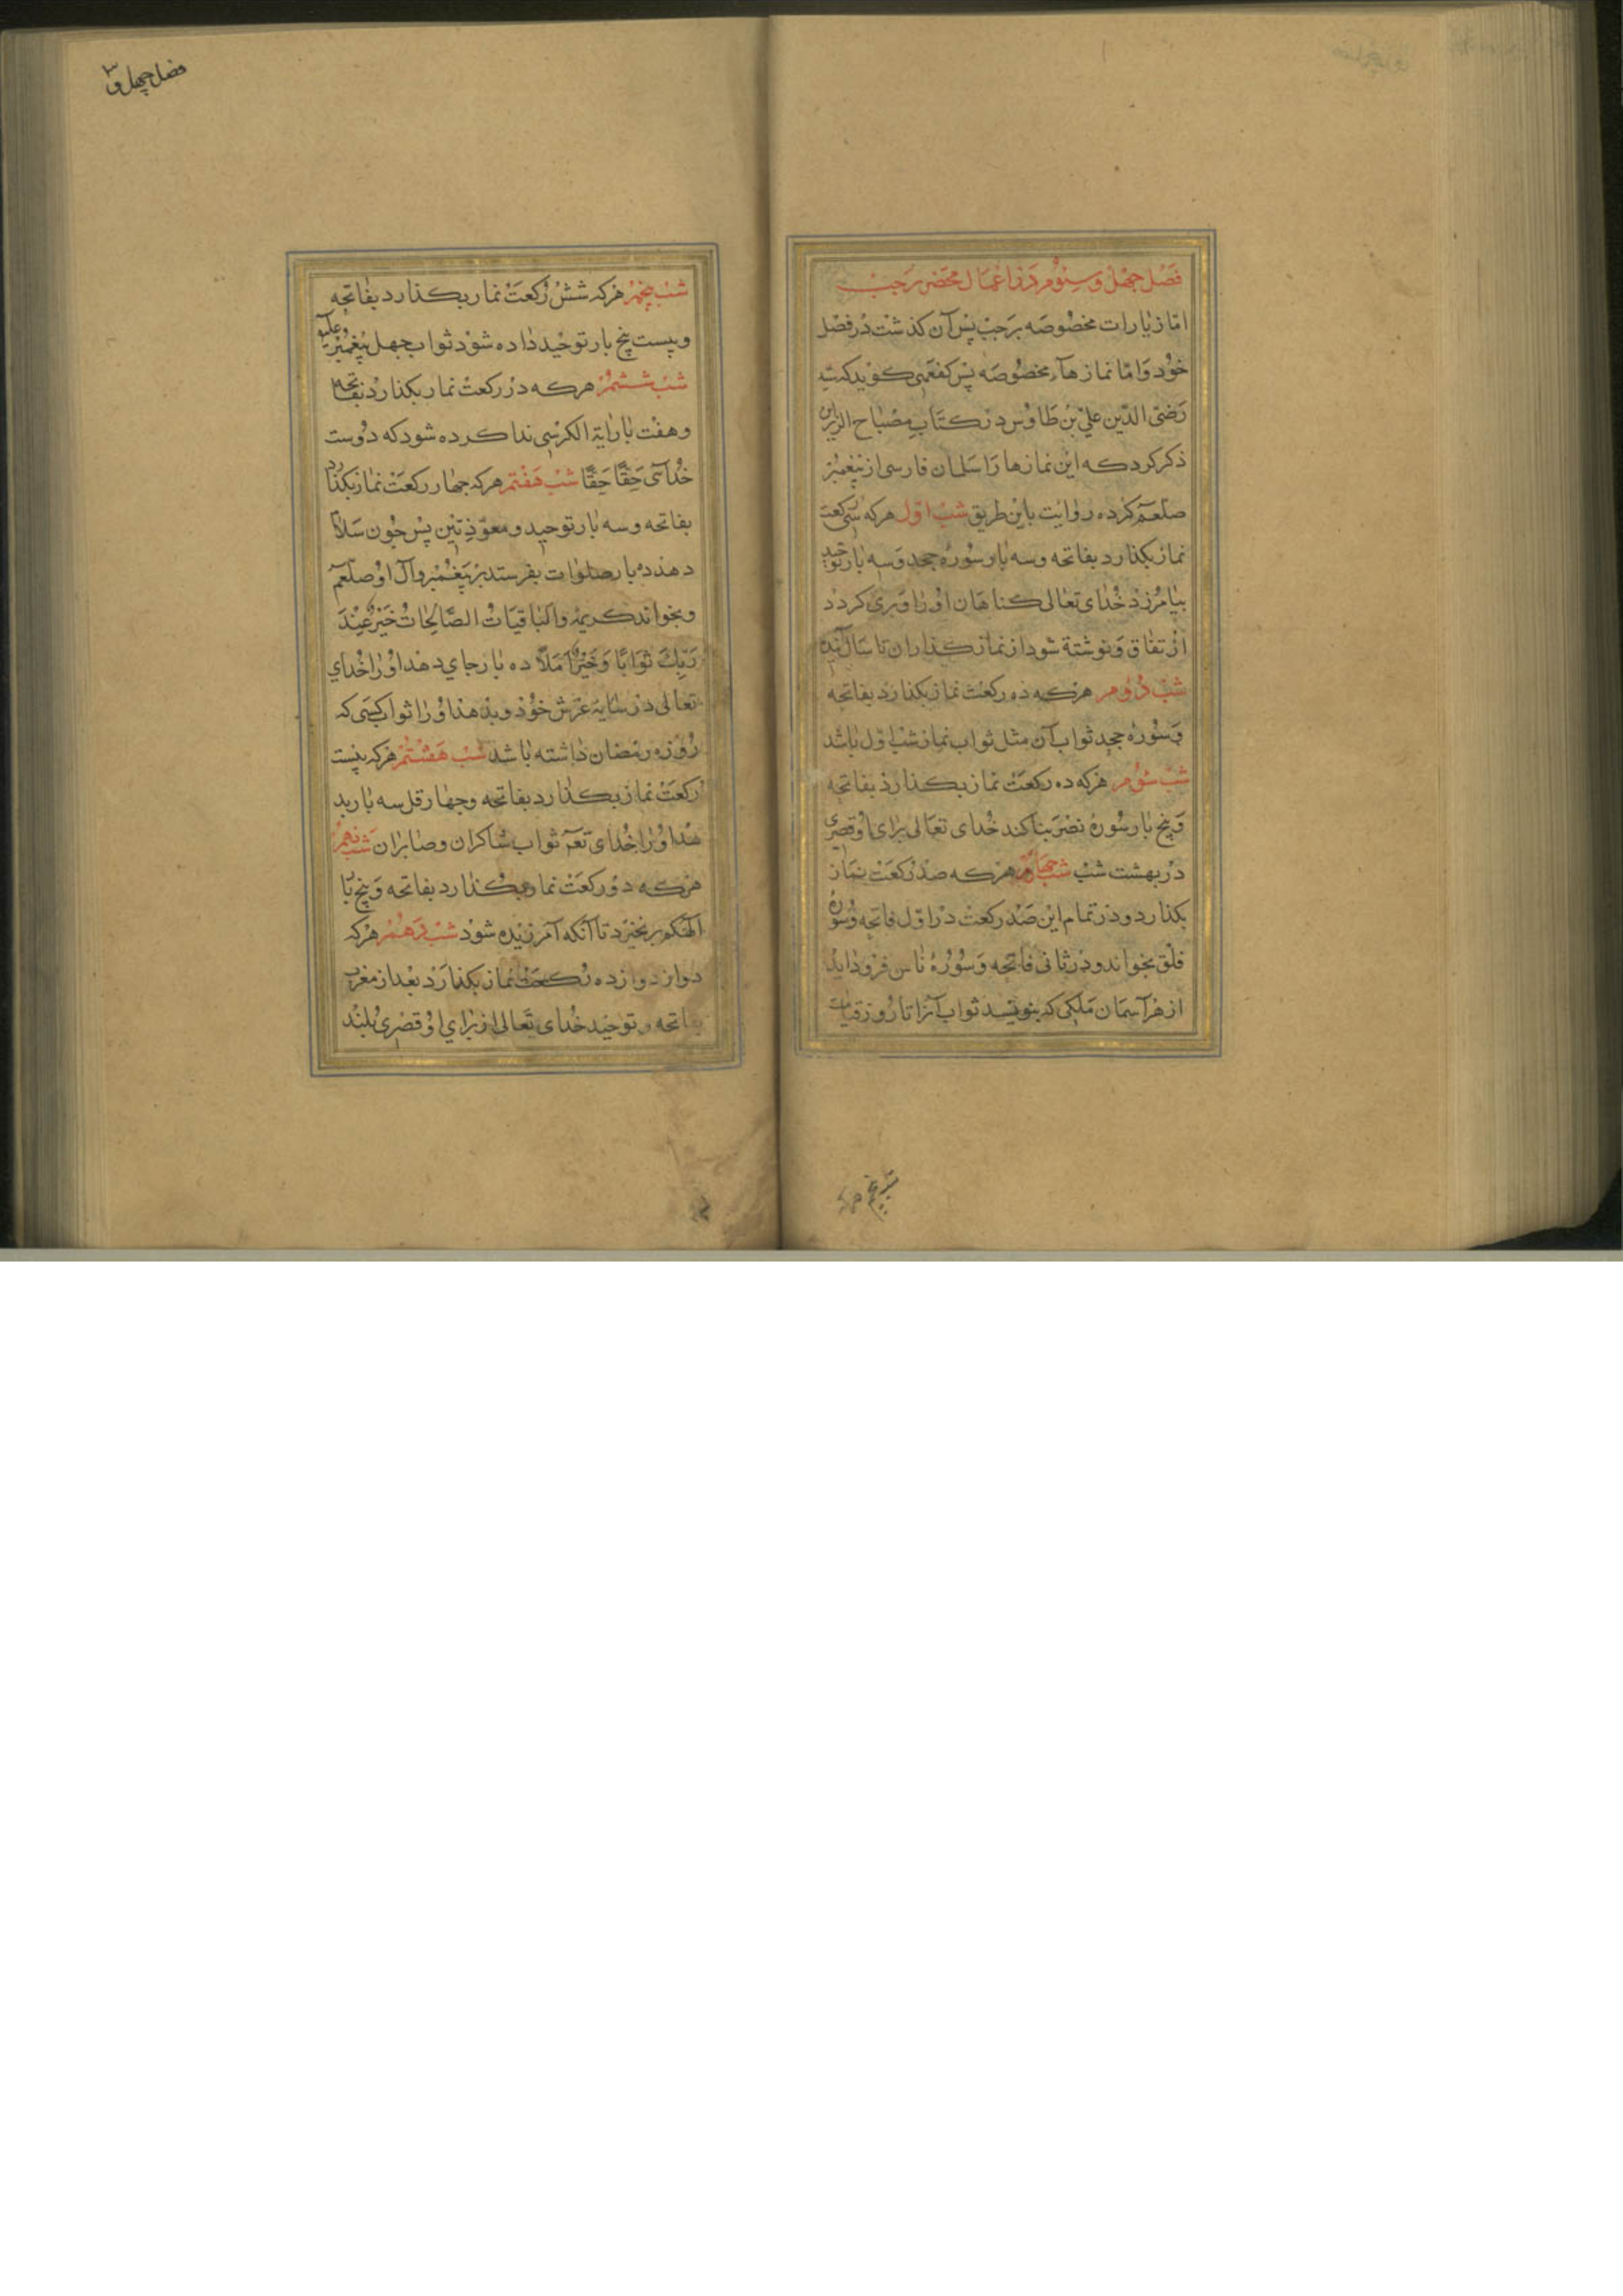 فصل چهل و سیوم در اعمال محضر رجب
اما زیارات مخصوصه برجب پس آن کذشت در فصل
خود و اما نماز هاء مخصوصه پس کفعمی کوید که سید
رضی الدین علی بن طاوس در کتاب مصباح الزایر
ذکر کرد که این نمازها را سلمان فارسی از پیغمبر
صلعم کرده روایت باین طریق شب اول هر که سی رکعت
نماز بکذارد بفاتحه و سه بار سوره جحد و سه بار توحید
بیامرزد خدای تعالی کناهان او را و بری کردد
از نفاق و نوشته شود از نماز کذاران تا سال آینده
شب دوم هر که ده رکعت نماز بکذارد بفاتحه
و سوره جحد ثواب آن مثل ثواب نماز شب اول باشد
شب سوم هر که ده رکعت نماز بکذارد بفاتحه
و پنج بار سوره نصر بنا کند خدای تعالی برای او قصری
در بهشت شب شب چهارم هر که صد رکعت نماز
بکذارد و در تمام این صد رکعت در اول فاتحه و سوره
فلق بخواند و در ثانی فاتحه و سوره ناس فرود اید
از هر آسمان ملکی که بنویسد ثواب آنرا تا روز قیامت
شب پنجم هر که
فصل چهل و ۳
شب پنجم هر که شش رکعت نماز بکذارد بفاتحه
و بیست پنج بار توحید داده شود ثواب چهل پیغمبر
شب ششم هر که دو رکعت نماز بکذارد بفاتحه
و هفت بار ایة الکرسی ندا کرده شود که دوست
خدائی حقا حقا شب هفتم هر که چهار رکعت نماز بکذارد
بفاتحه و سه بار توحید و معوذتین پس چون سلام
دهد ده بار صلوات بفرستد بر پیغمبر و آل او صلعم
و بخواند کریمه والباقیات الصالحات خیر عند
ربك ثوابا وخیر املا ده بار جای دهد او را خدای
تعالی در سایه عرش خود و بدهد او را ثواب کسی که
روزه رمضان داشته باشد شب هشتم هر که بیست
رکعت نماز بکذارد بفاتحه و چهار قل سه بار بد
هد او را خدای تعم ثواب شاکران و صابران شب نهم
هر که دو رکعت نماز بکذارد بفاتحه و پنج با
الهیکم برنخیزد تا آنکه آمرزیده شود شب دهم هر که
دوازده رکعت نماز بکذارد بعد از مغرب
بفاتحه و توحید خدای تعالی از برای او قصری بلند